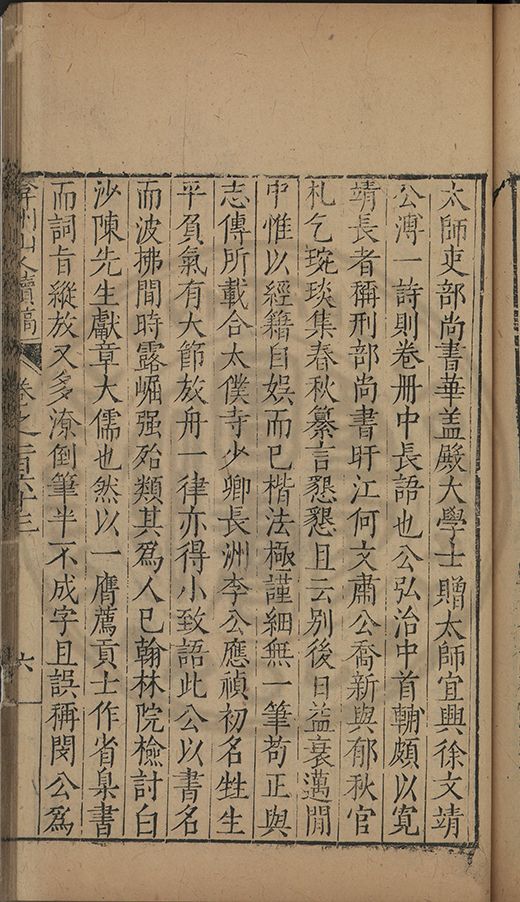 太師吏部尚書華盖殿大學士贈太師宜興徐文靖
公溥一詩則卷冊中長語也公弘治中首輔頗以寬
靖長者稱刑部尚書盱江何文肅公喬新與郁秋官
札乞琬琰集春秋纂言懇懇且云別後日益衰邁閒
中惟以經籍自娛而已楷法極謹細無一筆苟正與
志傳所載合太僕寺少卿長洲李公應禎初名甡生
平負氣有大節放舟一律亦得小致語此公以書名
而波拂間時露崛强殆類其爲人已翰林院檢討白
沙陳先生獻章大儒也然以一膺薦貢士作省臬書
而詞旨縱放又多潦倒筆半不成字且誤稱閔公爲
弇州山人續稿 卷之一百六十三 六